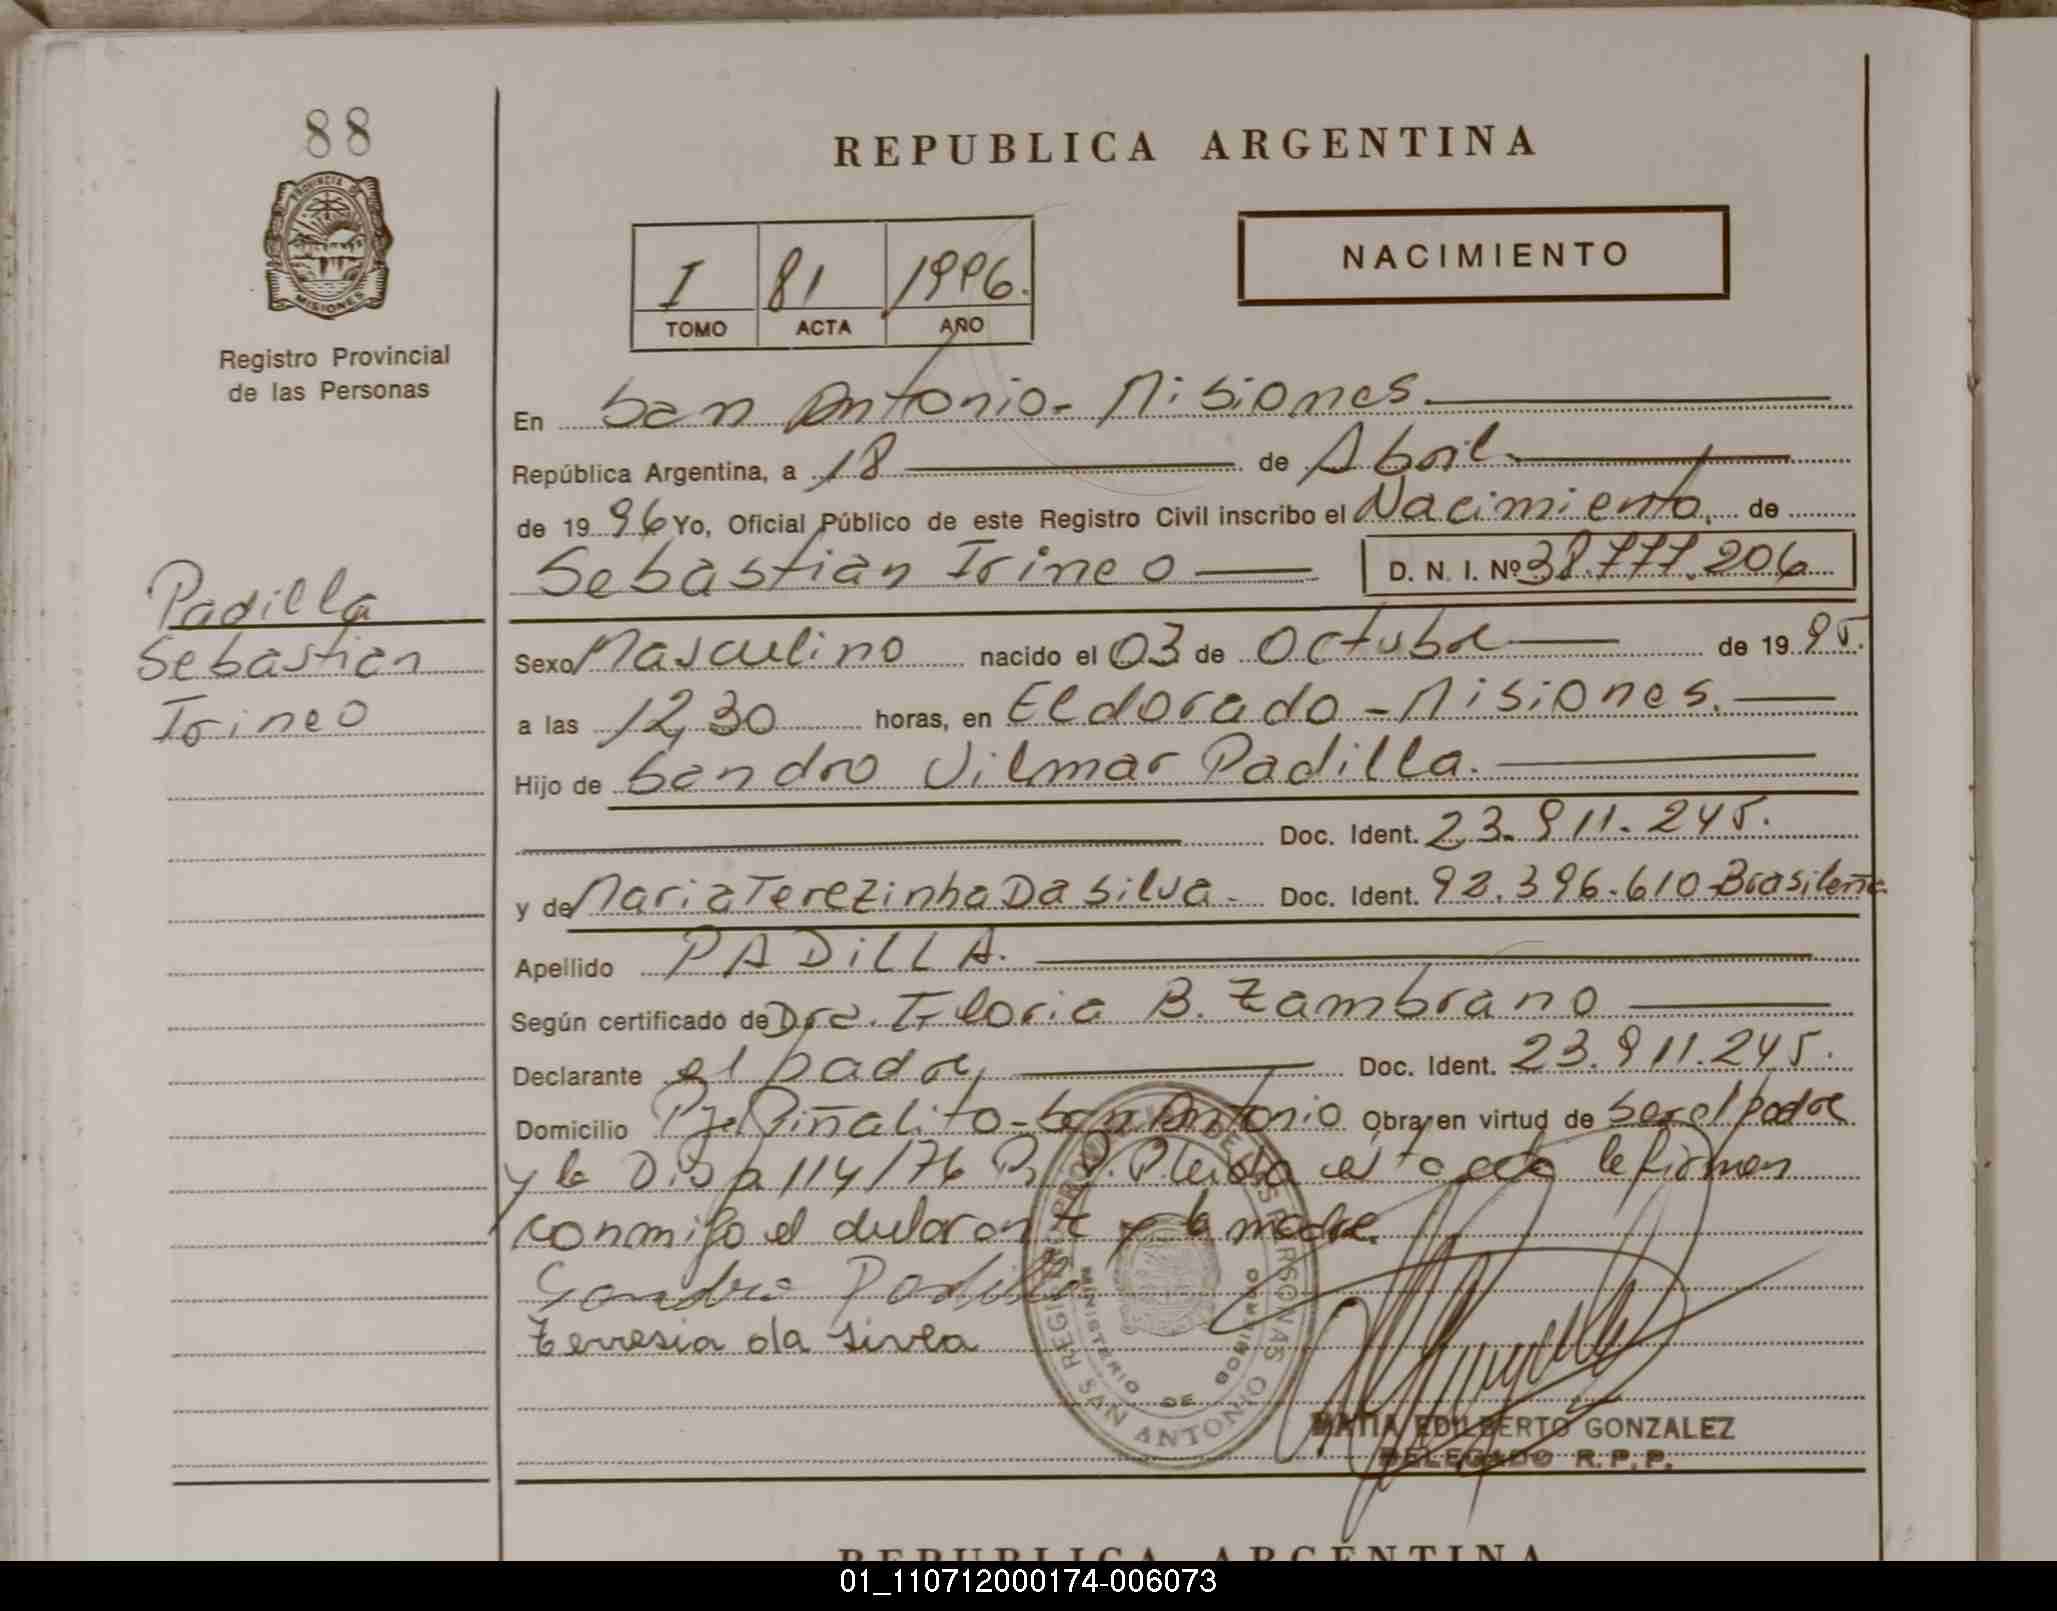 88
PROVINCIA DE
MISIONES
Registro Provincial
de las Personas
REPUBLICA ARGENTINA
NACIMIENTO
I 81 1996.
TOMO ACTA AÑO
En San Antonio - Misiones
República Argentina, a 18 de Abril
de 19 96 Yo, Oficial Público de este Registro Civil inscribo el Nacimiento, de
Sebastian Irineo D. N. I. Nº 38.777.206
Padilla
Sebastian
Irineo
Sexo Masculino nacido el 03 de Octubre de 19 95.
a las 12,30 horas, en Eldorado - Misiones.
Hijo de Sandro Vilmar Padilla.
Doc. Ident. 23.911.245.
y de Maria Terezinha Da Silva - Doc. Ident. 92.396.610 Brasileña
Apellido PADiLLA.
Según certificado de Dra. Floria B. Zambrano
Declarante el padre, Doc. Ident. 23.911.245.
Domicilio Pje Piñalito - San Antonio Obra en virtud de ser el padre
y la Disp. 114/76 Leida esta acta la firman
conmigo el declarante y la madre.
Sandro Padilla
terresia da sivla
MINISTERIO DE GOBIERNO
SAN ANTONIO
EDILBERTO GONZALEZ
DELEGADO R.P.P.
REPUBLICA ARGENTINA
01_110712000174-006073